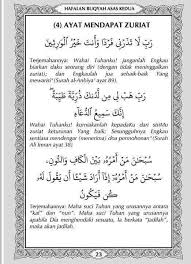 HAFALAN RUQYAH ASAS KEDUA
(4) AYAT MENDAPAT ZURIAT
رَبِّ لَا تَذَرْنِي فَرْدًا وَأَنتَ خَيْرُ الْوَارِثِينَ
Terjemahannya: Wahai Tuhanku! janganlah Engkau
biarkan daku seorang diri (dengan tidak meninggalkan
zuriat); dan Engkaulah jua sebaik-baik Yang
mewarisi"(Surah al-Anbiya' ayat 89).
رَبِّ هَبْ لِي مِن لَّدُنكَ ذُرِّيَّةً طَيِّبَةً
إِنَّكَ سَمِيعُ الدُّعَاءِ
Wahai Tuhanku! kurniakanlah kepadaku dari sisiMu
zuriat keturunan Yang baik; Sesungguhnya Engkau
sentiasa mendengar (menerima) doa permohonan" (Surah
Ali Imran ayat 38).
سُبْحَانَ مَنْ أَمْرُهُ بَيْنَ الْكَافِ وَالنُّونِ،
سُبْحَانَ مَنْ أَمْرُهُ إِذَا أَرَادَ شَيْئًا أَن يَقُولَ لَهُ
كُن فَيَكُونُ
Terjemahannya: Maha suci Tuhan yang urusannya antara
"kaf" dan "nun". Maha suci Tuhan yang urusannya
apabila Dia menghendaki sesuatu, Ia berkata "Jadilah",
maka akan jadilah.
23